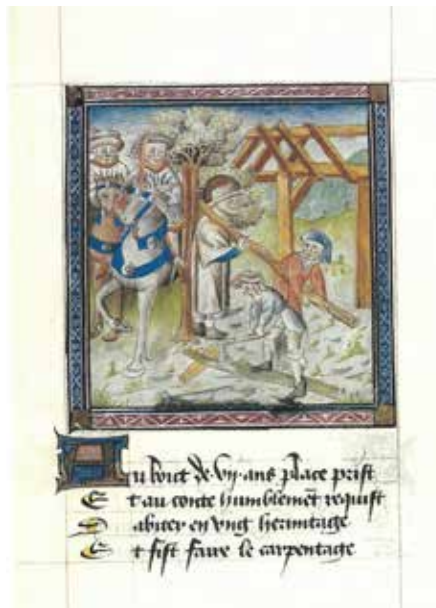 Au bout de .vii. ans place prist
Et au conte humblemēt requist
Dabiter en vng hermitage
Et fist faire le carpentage